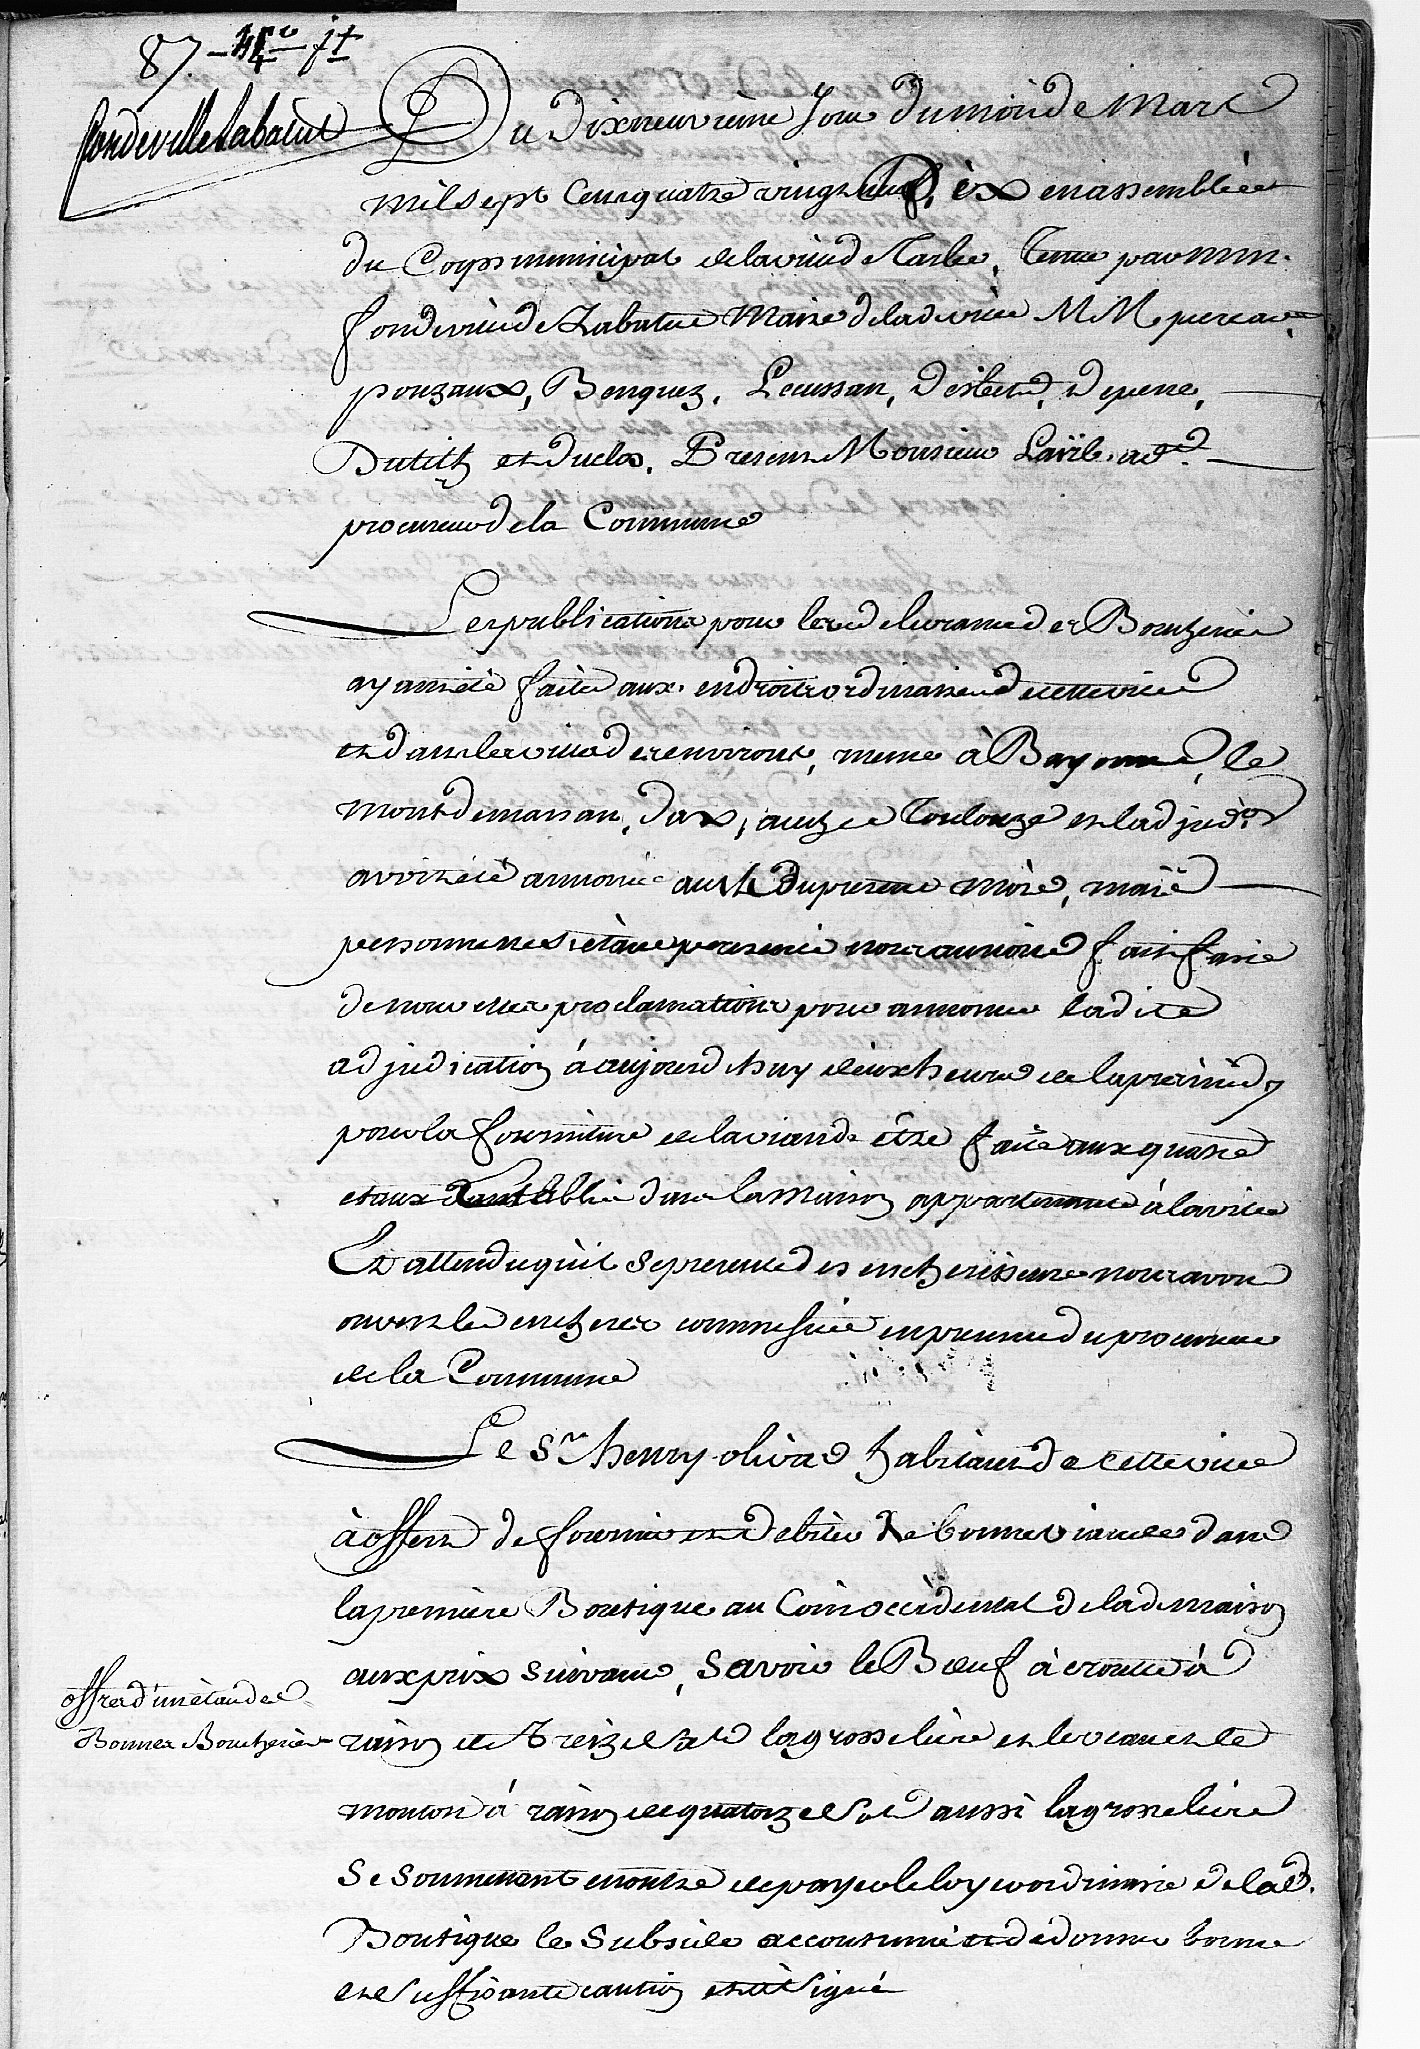 87.
fondeville Labatut
Du Dixneuvieme Jour du mois de Mars
mil sept cens quatre vingt Dix en assemblée
du Corps municipal de la ville de Tarbe, Tenue par mm.
fondeville de Labatut Maire de lad. ville MM pereau
pouzaux, Benquez, Lecussan, Desbets, Depene,
Dutilh et duclos, Present Monsieur
procureur de la Commune
Les publications pour les delivrances des Boucheries
ayant été faites aux endroits ordinaires de cette ville
et dans les villes des environs, meme à Bayonne, le
montdemarsan, dax, auch et Toulouze et ladjud.on
avoit été annoncée au du present mois, mais
personne ne s'etant presenté nous aurions fait faire
de nouvelles proclamations pour annoncer ladite
adjudication à aujourdhuy deux heures de la premidy
pour la fourniture de la viande etre faite aux quatre
etaux etablis dans la maison appartenante à la ville
Et attendu qu'il se presente des encherisseurs nous avons
ouvert les encheres comme suit en presence du procureur
de la Commune
Le Sr. henry olivas habitant de cette ville
à offert de fournir et debiter de bonnes viandes dans
la premiere Boutique au Coin occidental de lad. maison
aux prix suivants, Savoir le Bœuf à
raison de Treize Sols la grosse livre et le veau et le
mouton à raison de quatorze Sols aussi la grosse livre
Se soumettant en outre de payer le loyer ordinaire de lad.
Boutique le Subside accoutumé et de donner bonne
et Suffisante caution et à Signé
offre d'un etau de
Bonnes Boucheries